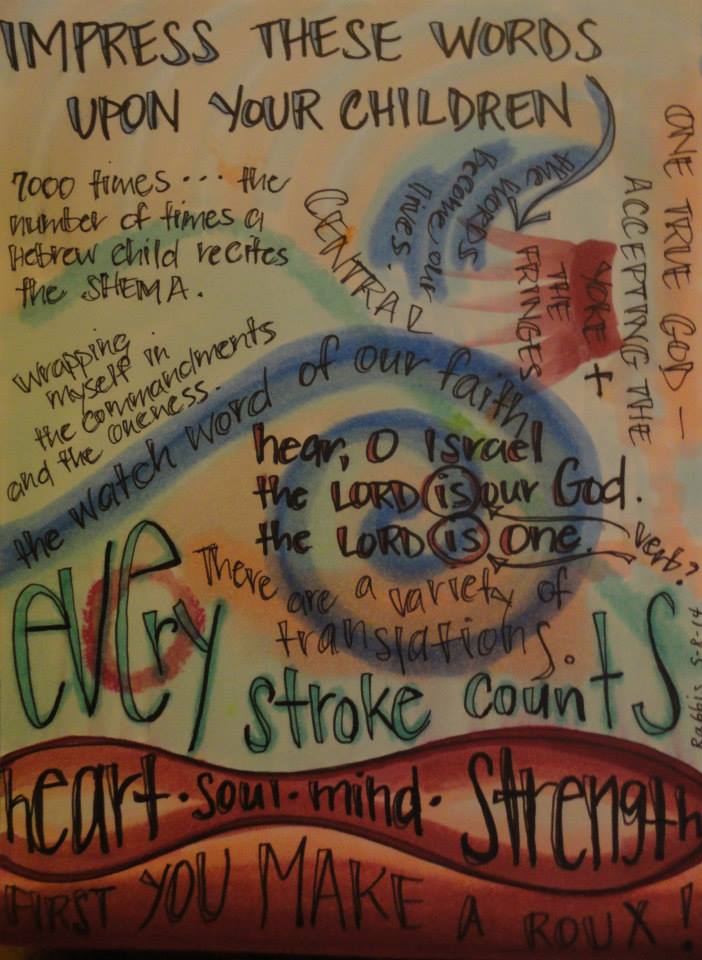 IMPRESS THESE WORDS
UPON YOUR CHILDREN
7000 times... the
number of times a
Hebrew child recites
the SHEMA.
CENTRAL
the words
become our
lives.
THE
FRINGES
YOKE +
ACCEPTING THE
ONE TRUE GOD —
Wrapping
myself in
the commandments
and the oneness.
the watch word of our faith
hear, O Israel
the LORD is our God.
the LORD is One.
verb?
There are a variety of
translations.
every
stroke counts
Rabbis 5-8-14
heart · soul · mind · Strength
FIRST YOU MAKE A ROUX!